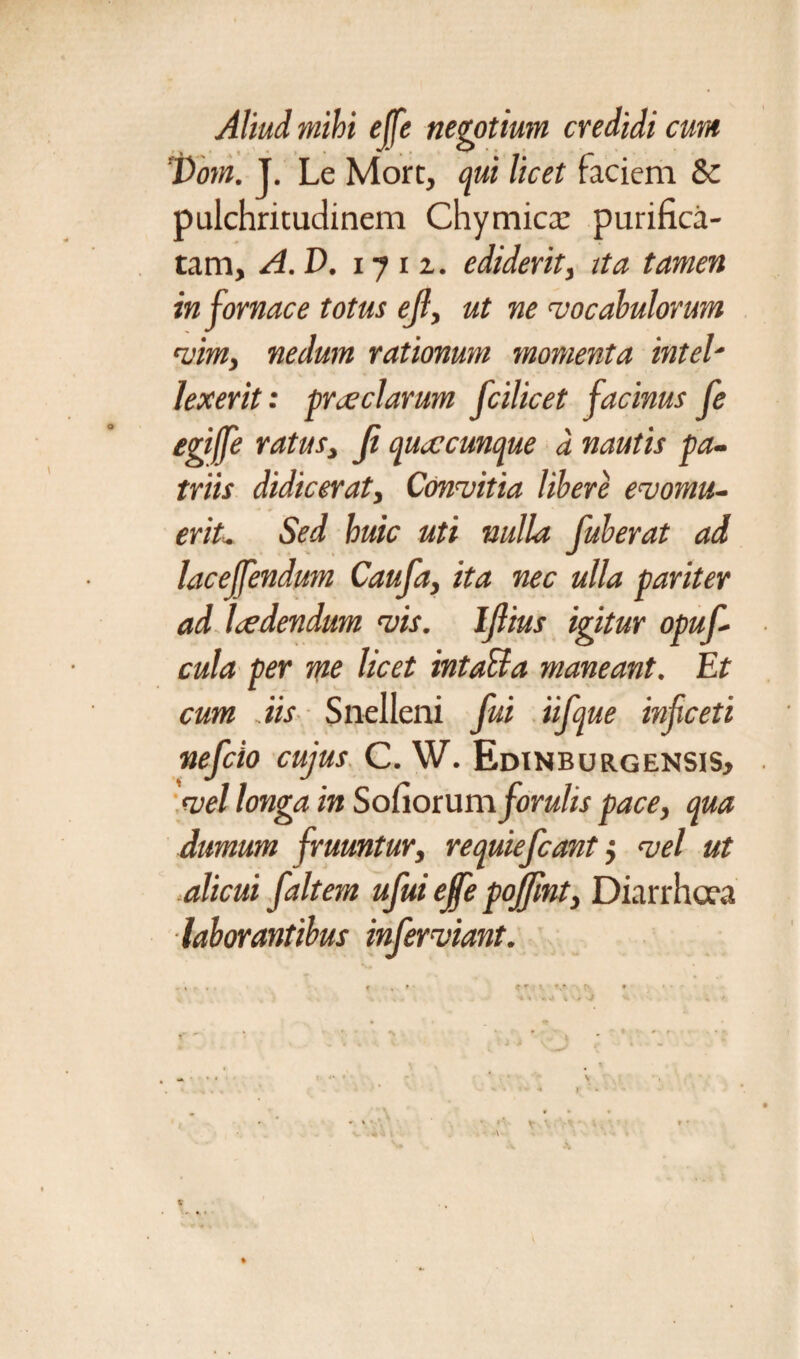 Aliud mihi eſſe negotium credidi cum
Dom. J. Le Mort, qui licet faciem &
pulchritudinem Chymicæ purificà-
tam, A. D. 1712. ediderit, ita tamen
in fornace totus eſt, ut ne vocabulorum
vim, nedum rationum momenta intel-
lexerit: præclarum ſcilicet facinus ſe
egiſſe ratus, ſi quæcunque à nautis pa-
triis didicerat, Convitia liberè evomu-
erit. Sed huic uti nulla ſuberat ad
laceſſendum Cauſa, ita nec ulla pariter
ad lædendum vis. Iſtius igitur opuſ-
cula per me licet intacta maneant. Et
cum iis Snelleni ſui iiſque inficeti
neſcio cujus C. W. EDINBURGENSIS,
vel longa in Soſiorum forulis pace, qua
dumum fruuntur, requieſcant; vel ut
alicui ſaltem uſui eſſe poſſint, Diarrhœa
laborantibus inſerviant.